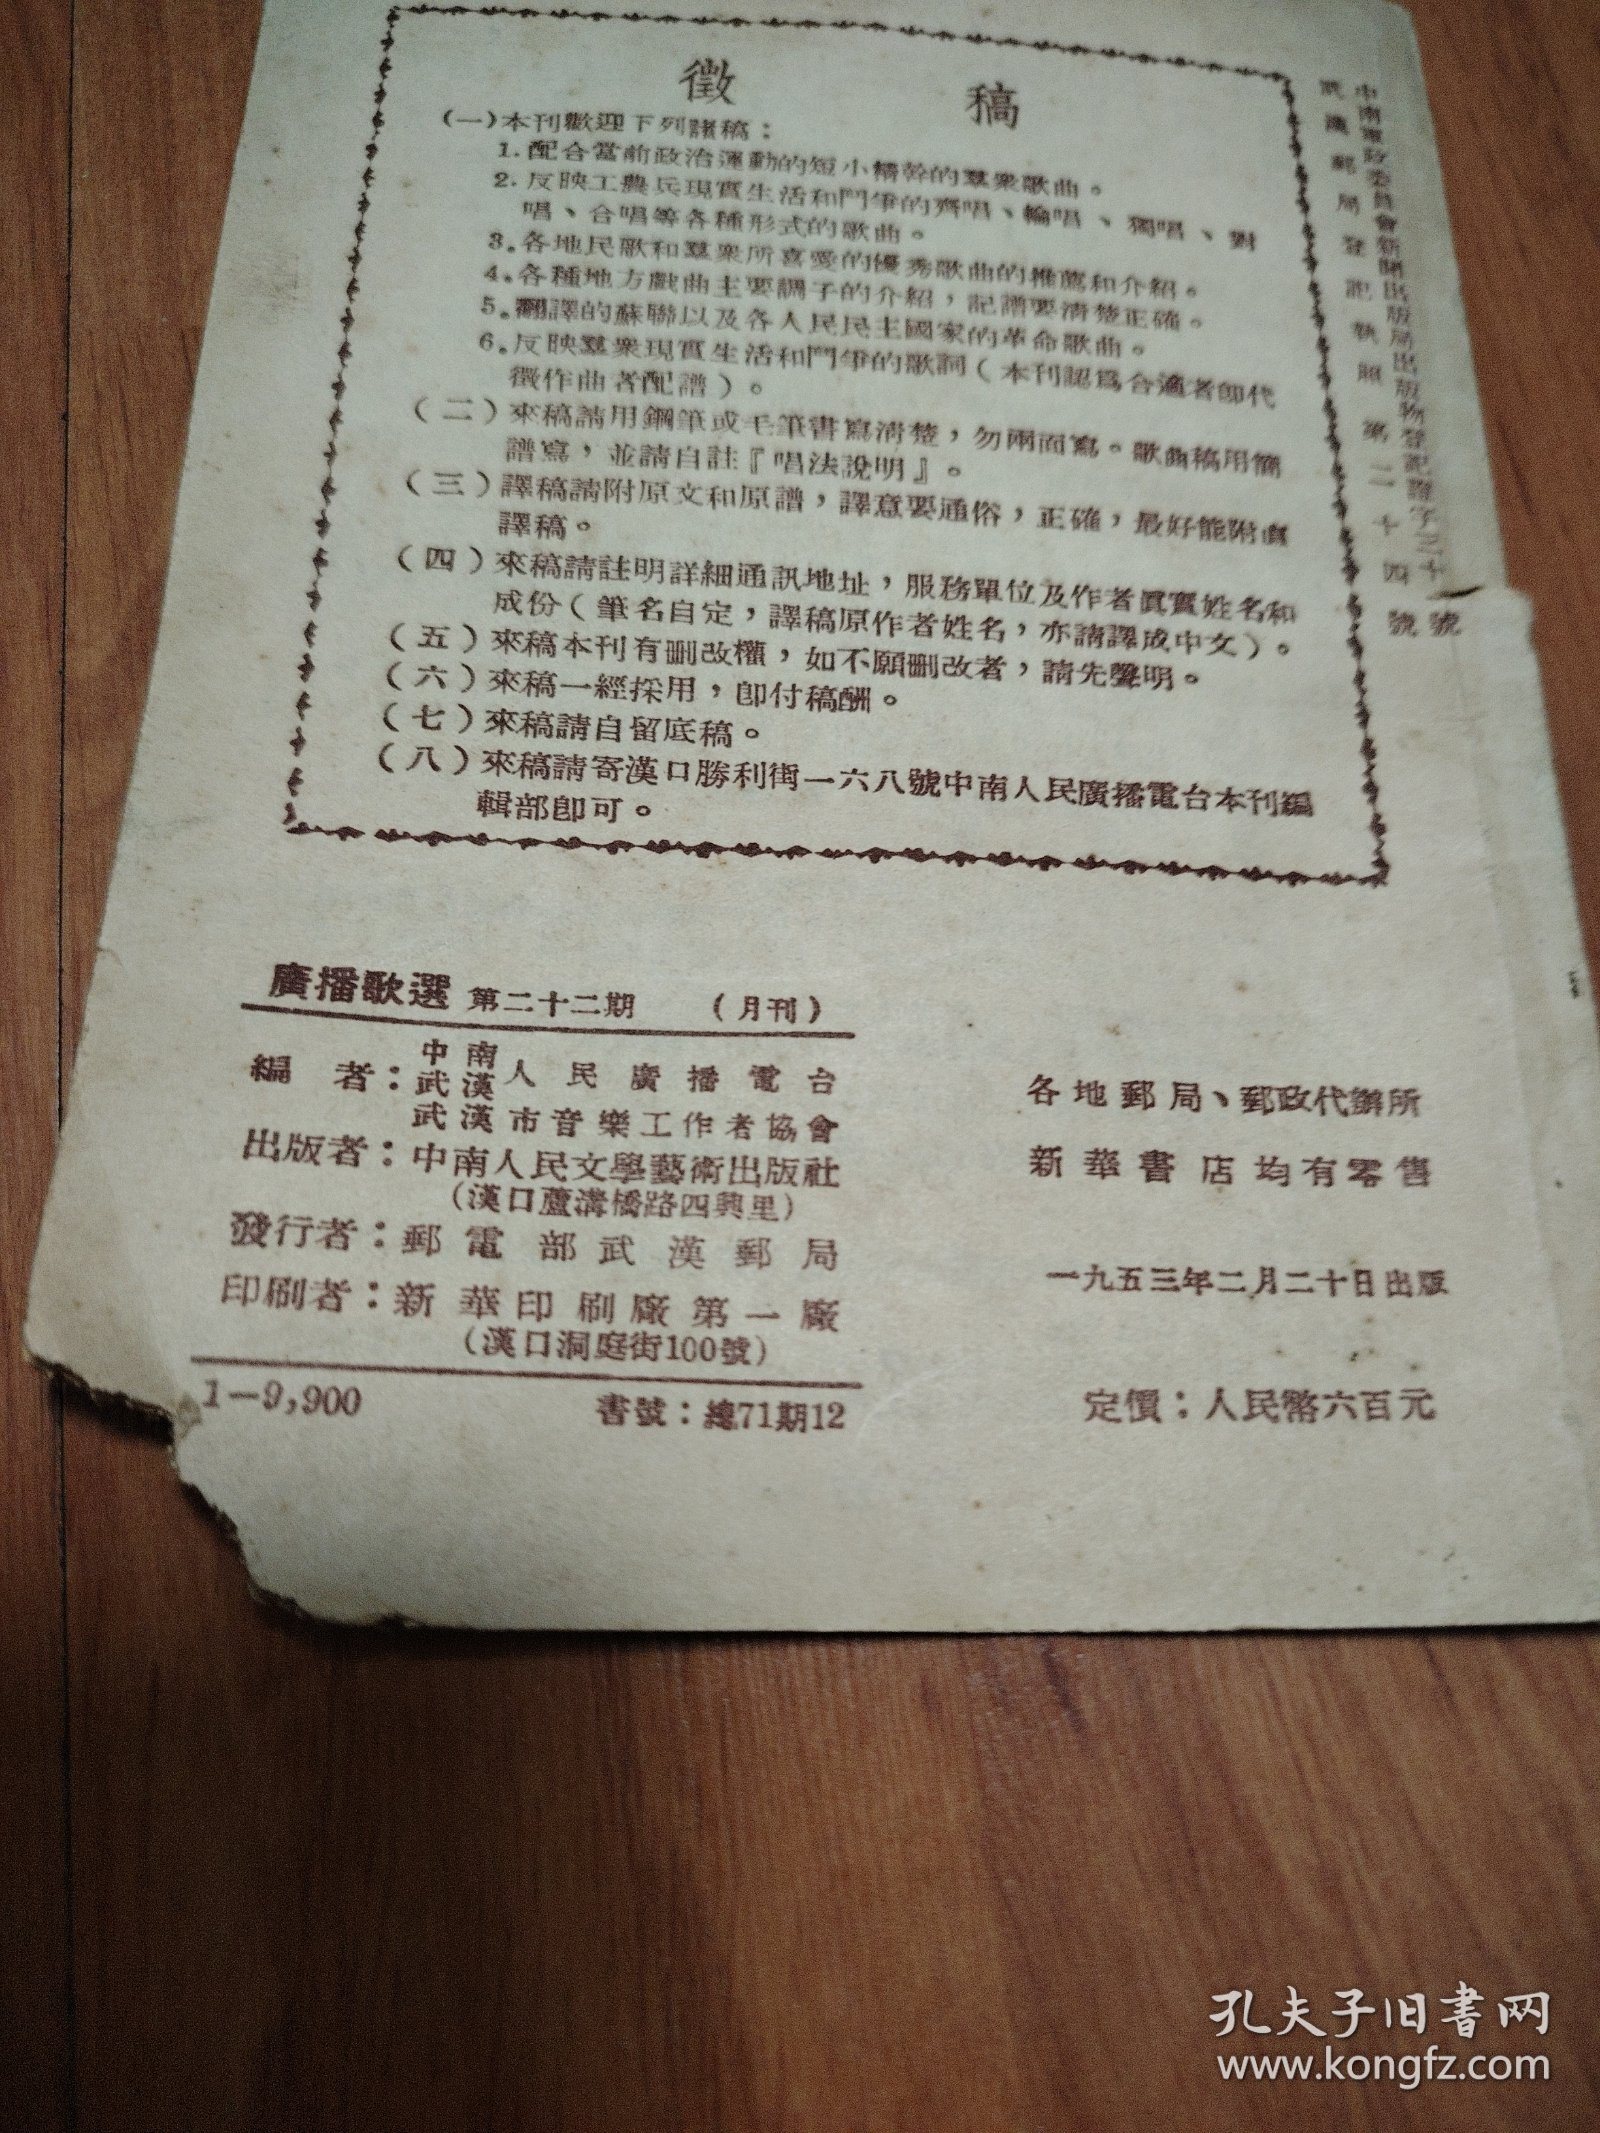 徵稿
(一)本刊歡迎下列諸稿：
1.配合當前政治運動的短小精幹的羣衆歌曲。
2.反映工農兵現實生活和鬥爭的齊唱、輪唱、獨唱、對
唱、合唱等各種形式的歌曲。
3.各地民歌和羣衆所喜愛的優秀歌曲的推薦和介紹。
4.各種地方戲曲主要調子的介紹，記譜要清楚正確。
5.翻譯的蘇聯以及各人民民主國家的革命歌曲。
6.反映羣衆現實生活和鬥爭的歌詞（本刊認爲合適者卽代
徵作曲者配譜）。
(二)來稿請用鋼筆或毛筆書寫清楚，勿兩面寫。歌曲稿用簡
譜寫，並請自註『唱法說明』。
(三)譯稿請附原文和原譜，譯意要通俗，正確，最好能附直
譯稿。
(四)來稿請註明詳細通訊地址，服務單位及作者眞實姓名和
成份（筆名自定，譯稿原作者姓名，亦請譯成中文）。
(五)來稿本刊有刪改權，如不願刪改者，請先聲明。
(六)來稿一經採用，卽付稿酬。
(七)來稿請自留底稿。
(八)來稿請寄漢口勝利街一六八號中南人民廣播電台本刊編
輯部卽可。
中南軍政委員會新聞出版局出版物登記證字三十號
武漢郵局登記執照第二十四號
廣播歌選 第二十二期 （月刊）
編者：中南武漢人民廣播電台
武漢市音樂工作者協會
出版者：中南人民文學藝術出版社
（漢口蘆溝橋路四興里）
發行者：郵電部武漢郵局
印刷者：新華印刷廠第一廠
（漢口洞庭街100號）
1—9,900 書號：總71期12
各地郵局、郵政代辦所
新華書店均有零售
一九五三年二月二十日出版
定價：人民幣六百元
孔夫子旧書网
www.kongfz.com